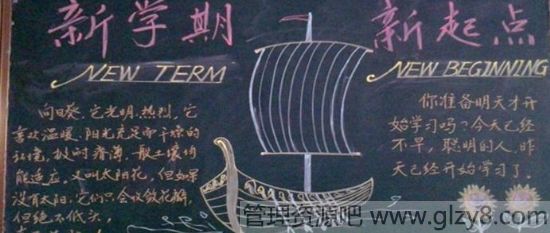 新学期
NEW TERM
向日葵,它光明,热烈,它
喜欢温暖、阳光充足而干燥的
环境,极耐瘠薄,一般土壤均
能适应,又叫太阳花,但如果
没有太阳,它们只会收敛花瓣,
但绝不低头,
新起点
NEW BEGINNING
你准备明天才开
始学习吗?今天已经
不早,聪明的人,昨
天已经开始学习了。
管理资源吧 www.glzy8.com